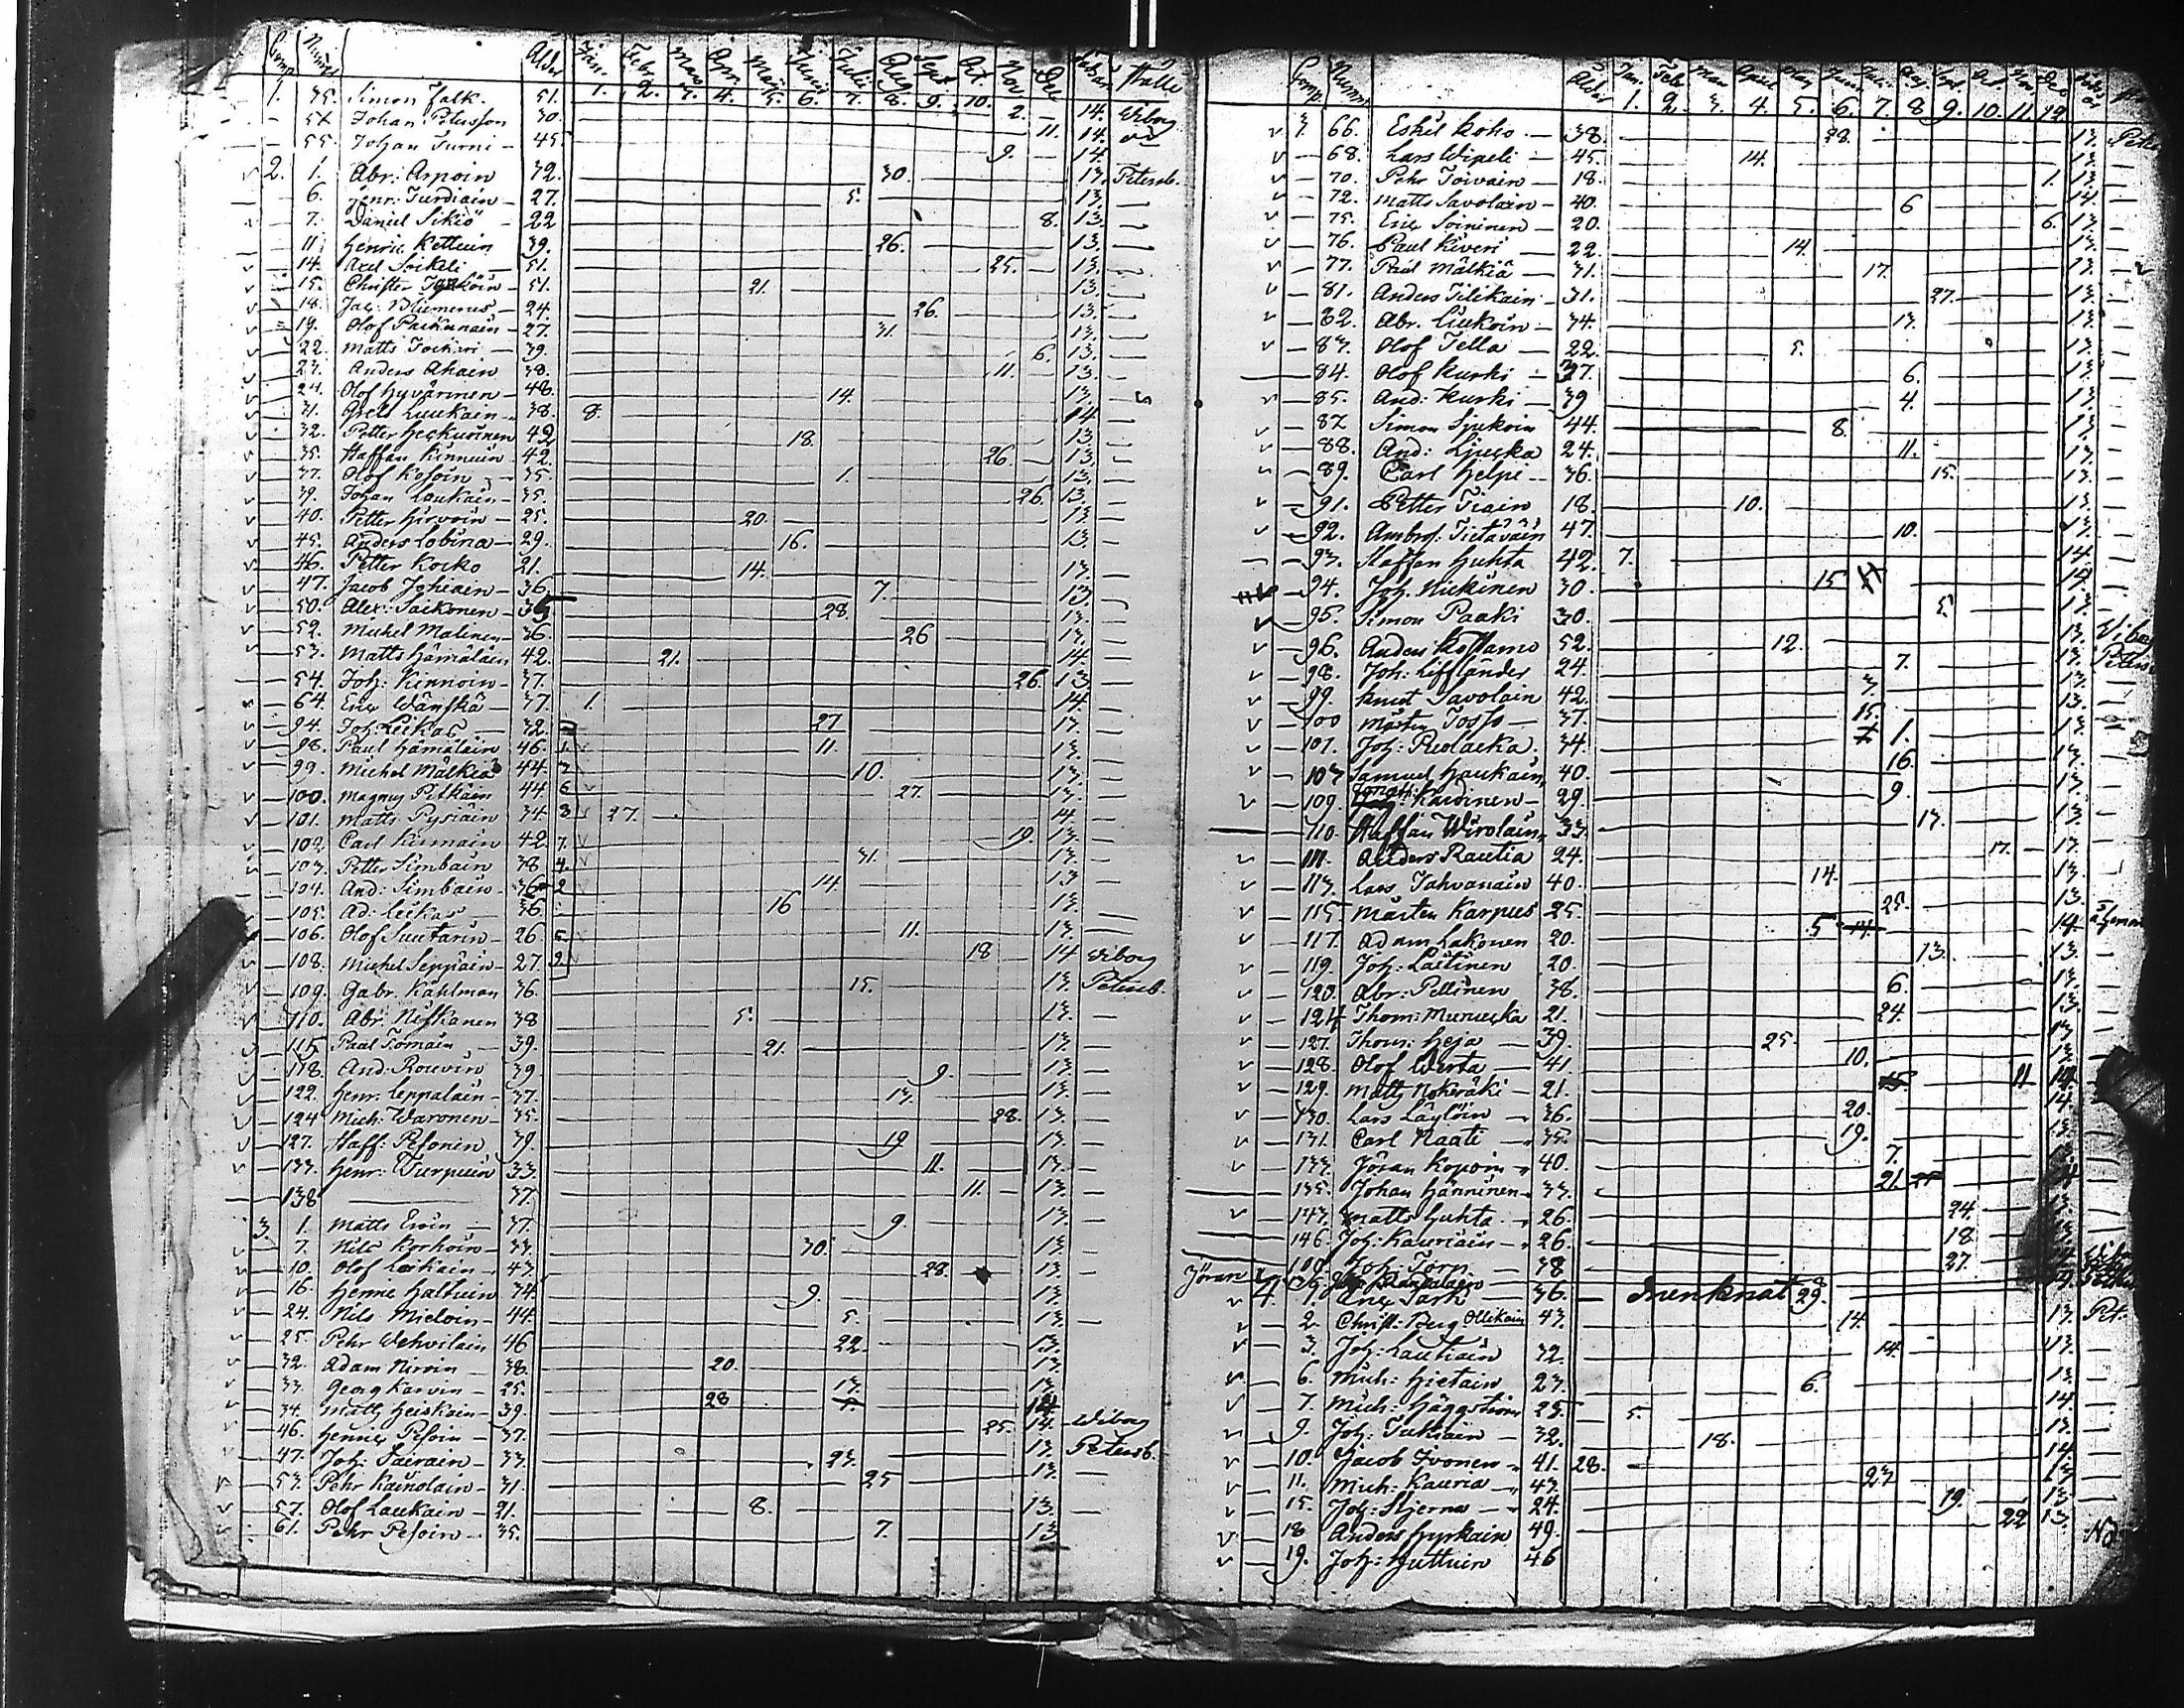 Comp. Numer Ålder Jan. Febr. Mars Apr. Maj Junij Julii Aug. Sept. Oct. Nov Dec Halle
1. 2. 3. 4. 5. 6. 7. 8. 9. 10.
1. 35. Simon Falk. 51. 2. 14. Wiborg
54 Johan Petersson 30. 11. 14.
55. Johan Turni 45. 9. 14.
2. 1. Abr: Arpoin 32. 30. 13. Petersb.
6. Henr: Turdiain 27. 5. 13.
7. Daniel Sikiö 22 8. 13.
11 Henric Kettuin 39. 26. 13.
14. Axel Soikeli 51. 25. 13.
15. Christer 51. 21. 13.
18. Jac: Blumerus 24. 26. 13.
19. Olof Paikanain 27. 31. 13.
22. Matts 39. 6. 13.
23. Anders Ahain 38. 11. 13.
24. Olof Hyvärinen 48. 14. 13.
31. Axel Luukain 38. 8. 14.
32. Petter Heckuoinen 42 18. 13.
35. Staffan Kinnuin 42. 26. 13.
37. Olof Kosoin 35. 1. 13.
39. Johan Laukain 35. 26. 13.
40. Petter Hirvoin 25. 20. 13.
45. Anders Lobina 29. 16. 13.
46. Petter Kocko 21. 14. 13.
47. Jacob Ighiain 36. 7. 13.
50. Alex: Saikonen 28. 13.
52. Michel Malinen 36. 26 13.
53. Matts Hämäläin 42. 21. 14.
54. Joh: Kinnoin 37. 26. 13
64. Eric Wänskä 37. 1. 14.
94. Joh: Leikas 32. 27 13.
98. Paul Hämäläin 46. 1. 11. 13.
99. Michel Mälkiä 44. 10. 13.
100. Magnus Pitkäin 44 6 27. 13.
101. Matts Pysiäin 34 3 27. 14.
102. Carl Kinnain 42. 7. 19. 13.
103. Petter Simbain 38 4. 31. 13.
104. And: Simbain 36 2 14. 13
105. Ad: Leikas 36 16 13.
106. Olof Suutarin 26 5. 11. 13.
108. Michel Seppäin 27. 9. 18 14 Wiborg
109. Gabr. Kahlman 36. 15. 13. Petersb.
110. Abr: Niskanen 38 5. 13.
115 Paul Tomain 39. 21. 13.
118. And: Rouvin 39 9. 13.
122. Henr: Leppäläin 37. 13. 13.
124 Mich: Waronen 35. 28. 13.
127. Staff: Pesonen 39. 19 13.
133. Henr: Turpuin 33. 11. 13.
138 37. 11. 13.
3. 1. Matts Ervin 37. 9. 13.
7. Nils Korhoin 33. 30. 13.
10. Olof Leikain 43. 28. 13.
16. Henric Haltuin 34. 9. 13.
24. Nils Mieloin 44. 5. 13.
25. Pehr Wehviläin 46 22. 13.
32. Adam Nirvin 38. 20. 13.
33. Georg Karvin 25. 13. 13.
34. Matts Heiskain 39. 28 14
46. Henric Pesoin 37. 25. 14. Wiborg
47. Joh: Tairain 33. 23. 13. Petersb.
53. Pehr Kainolain 31. 25 13.
57. Olof Laukain 21. 8. 13.
61. Pehr Pesoin 35. 7. 13
Comp. Numr Ålder Jan. Febr Mar April Maj Junii Juli Aug Sept. Oct. Nov. Dec
1. 2. 3. 4. 5. 6. 7. 8. 9. 10. 11. 12.
3. 66. Eskil Koho 38. 28. 13.
68. Lars Wipeli 45. 14. 13.
70. Pehr Toivain 18. 1. 13.
72. Matts Savolain 40. 6 14.
75. Eric Soininen 20. 6. 13.
76. Paul Kiveri 22. 14. 13.
77. Paul Mälkiä 31. 17. 13.
81. Anders Tilikain 31. 27. 13.
82. Abr. Liukoin 34. 13. 13.
83. Olof Tella 22. 5. 13.
84. Olof Kurki 37. 6. 13.
85. And: Kurki 39 4. 13.
87 Simon Sjukoin 44. 8. 13.
88. And: Ljucka 24. 11. 13.
89. Carl Helpi 36. 15. 13.
91. Petter Tiain 18. 10. 13.
92. Ambros. Tietäväin 47. 10. 13.
93. Staffan Huhta 42. 7. 14.
94. Joh. Mickinen 30. 15
95. Simon Paaki 30. 5. 13.
96. Anders 52. 12. 13. Wiborg
98. Joh: Liffländer 24. 7. 13.
99. Knut Savolain 42. 3. 13.
100 Mårten Tosso 37. 15. 13.
101. Joh: Ruolacka 34. 1. 13.
107 Samuel Haukain 40. 16. 13.
109. Kardinen 29. 9. 13.
110. Staffan Wirolain 33. 13. 13.
111. Anders Rautia 24. 17. 13.
113. Lars Tahvanain 40. 14. 13.
115. Mårten Karpus 25. 25. 13.
117. Adam Lakonen 20. 5 14.
119. Joh: Laitinen 20. 13. 13.
120. Abr: Pellinen 38. 6. 13.
124 Thom: Murucka 21. 24. 13.
127. Thom: Heja 39. 25. 13.
128. Olof Werta 41. 10. 13.
129. Matts Nokeräki 21. 11
130. Lars Läylöin 36. 20. 14.
131. Carl Naati 35. 19. 13.
133. Jöran Kopoin 40. 7.
135. Johan Hänninen 33. 21.
143. Matts Huhta 26. 24. 13
146. Joh: Kauriain 26. 18. 13
Joh: Torp 38 27.
Jöran 36
4. 1. Eric Tark 36. Drunknat 29.
2. Christ: Berg Ollikain 43. 14. 13. Pet.
3. Joh: Lautiain 32. 14. 13.
6. Mich: Hietain 23. 6. 13.
7. Mich: Häggström 25. 5. 14.
9. Joh: Tukiain 32. 18. 13.
10. Jacob Ivonen 41. 28. 14.
11. Mich: Kauria 43. 23 13
15. Joh: Stjerna 24. 19. 13.
18 Anders Hyrkain 49. 22 13.
19. Joh: Huttuin 46